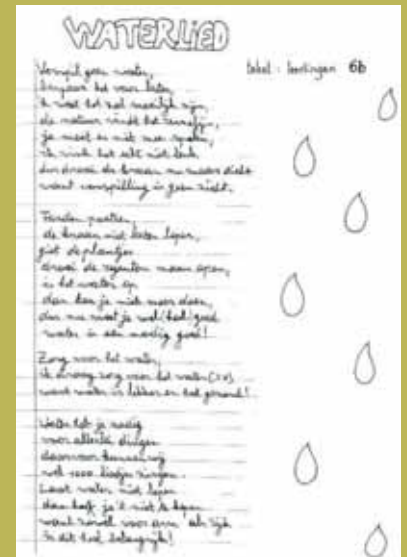 WATERLIED
tekst: leerlingen 6b
Verspil geen water,
bespaar het voor later,
ik weet het zal moeilijk zijn,
de natuur vindt het fijn,
je moet er niet mee spelen,
ik vind het echt niet leuk
dus draai de kraan nu maar dicht
want verspilling is geen zicht.
Tanden poetsen,
de kraan niet laten lopen,
giet de plantjes
draai de regenton maar open,
is het water op
dan kan je niets meer doen,
dus nu weet je wel (heel) goed
water is een nodig goed!
Zorg voor het water,
ik draag zorg voor het water (2x)
want water is lekker en heel gezond!
Water heb je nodig
voor allerlei dingen
daarvoor kunnen wij
wel 1000 liedjes zingen.
Laat water niet lopen
dan hoef je 't niet te kopen
want zowel voor arm als rijk
is dit heel belangrijk!